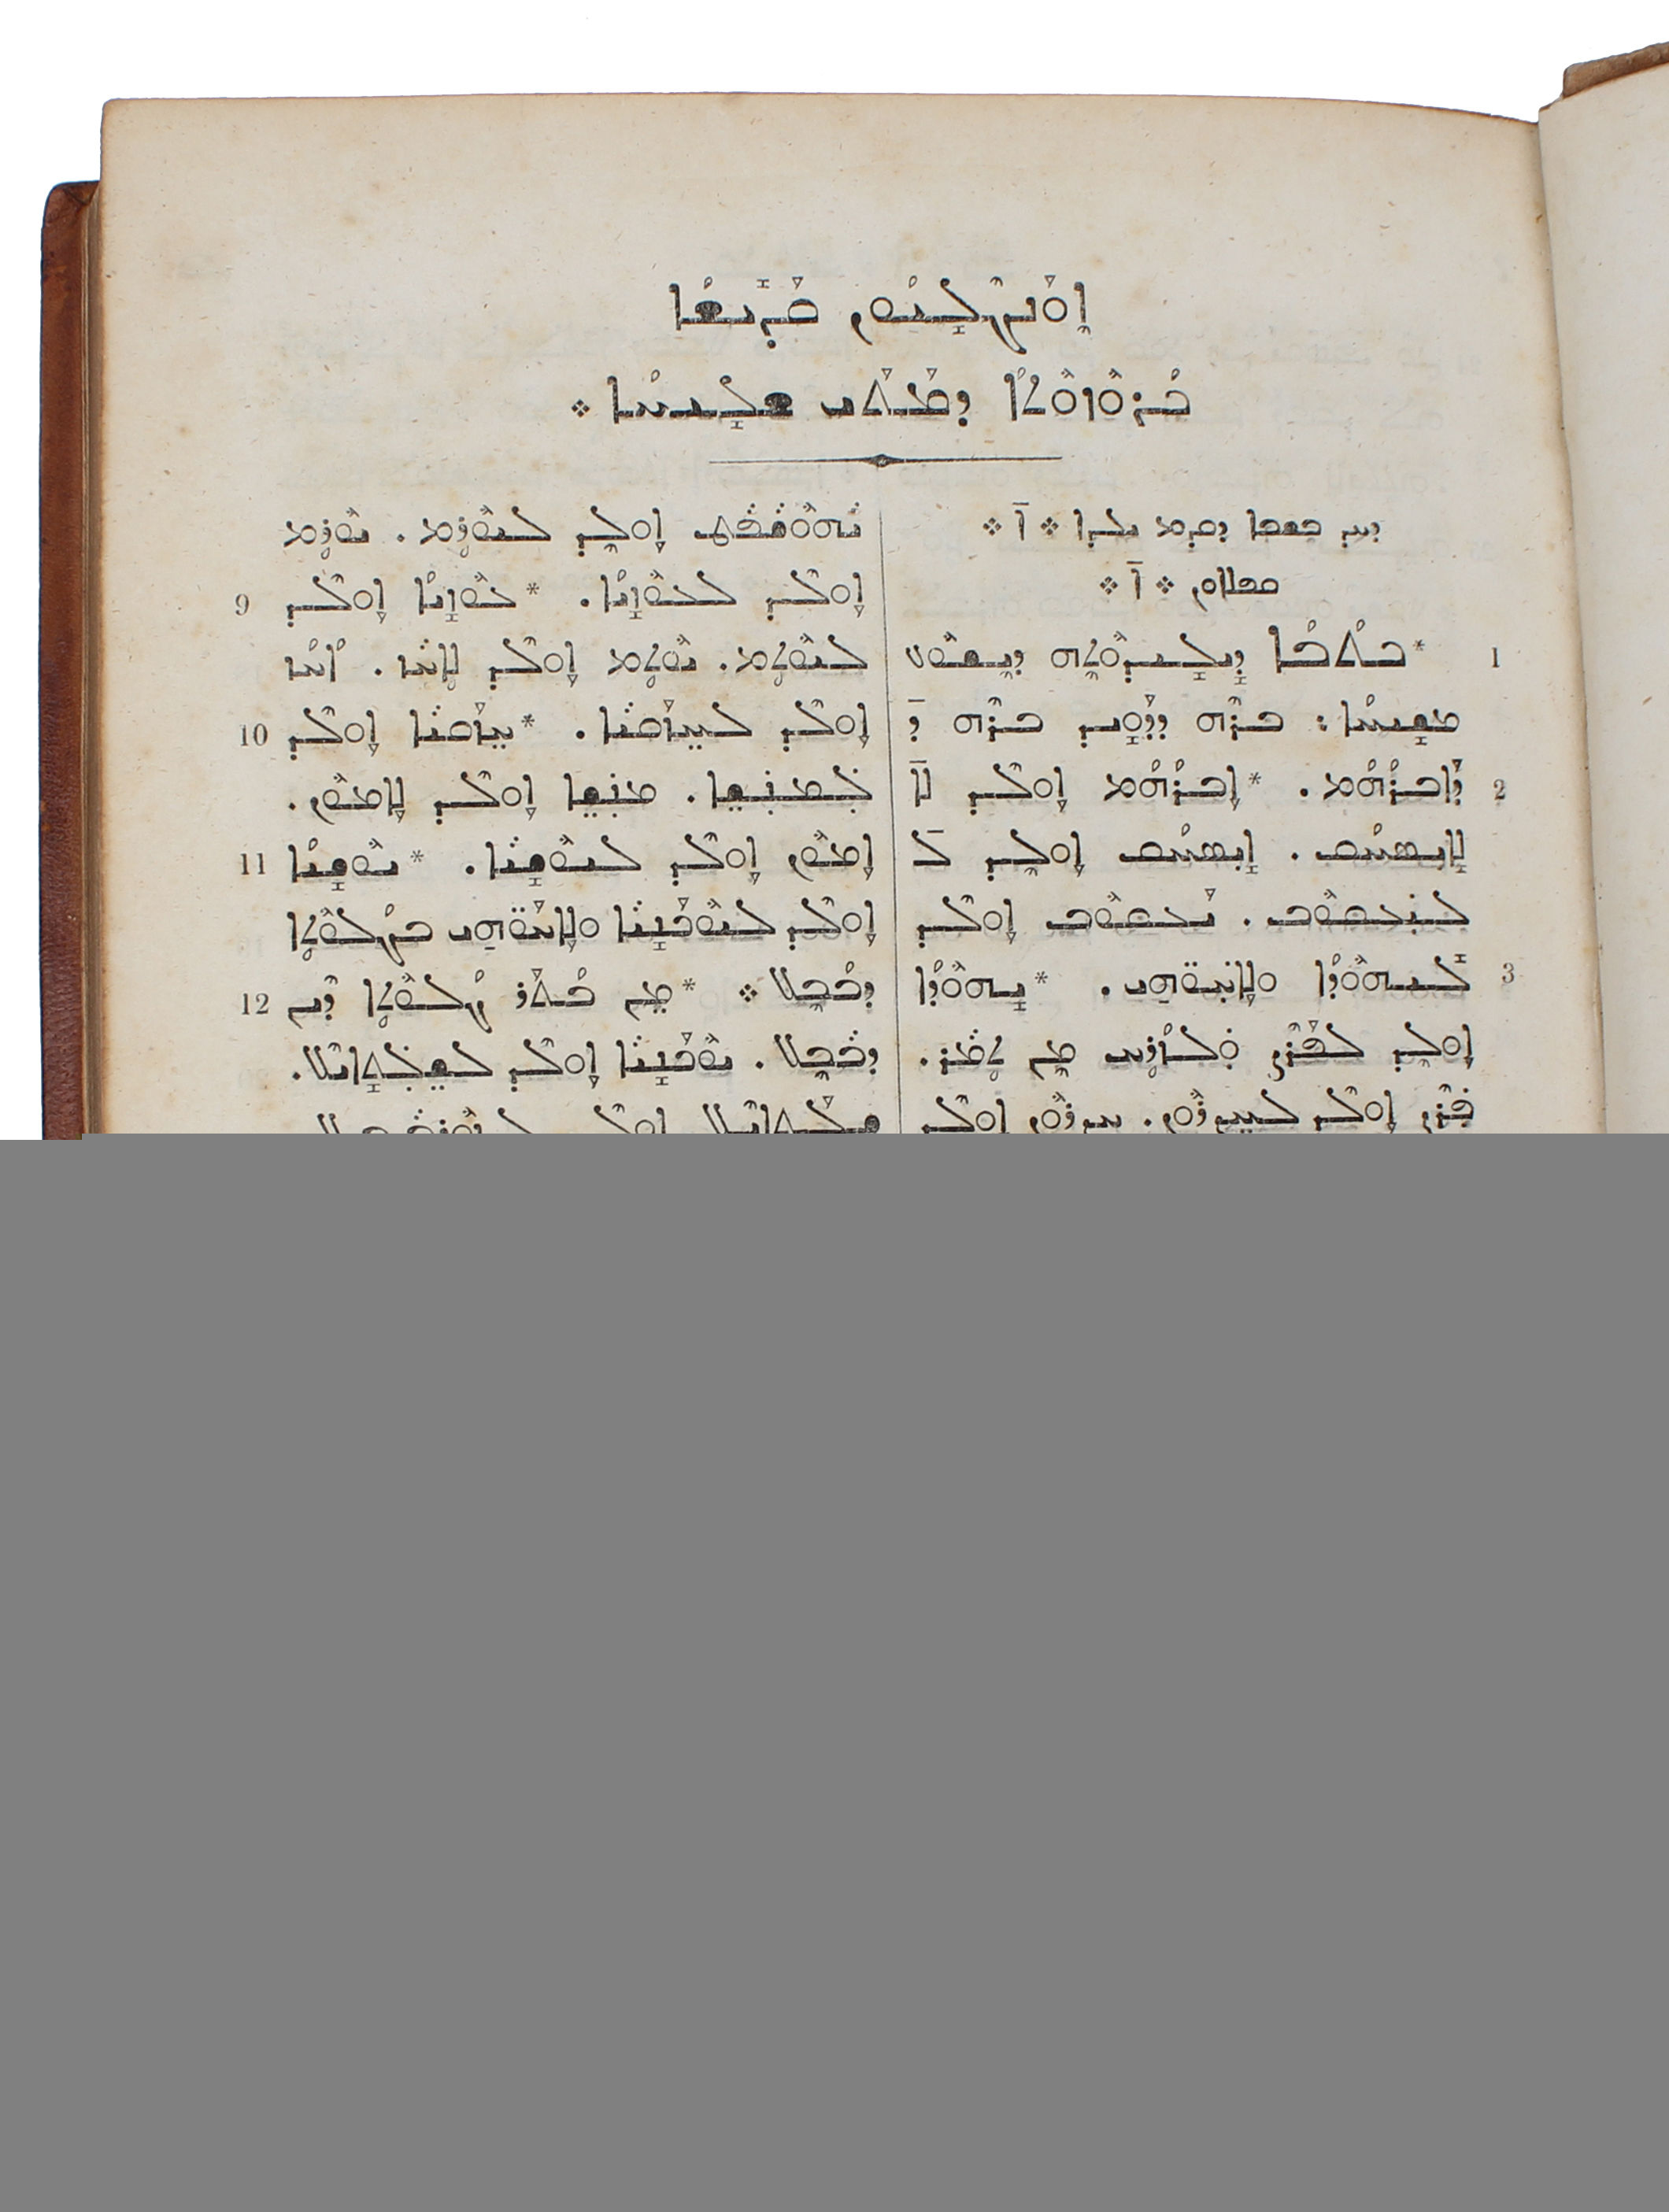 ܐܶܘܰܢܓܶܠܺܝܳܘܢ ܩܰܕܺܝܫܳܐ
ܟܳܪܽܘܙܽܘܬܳܐ ܕܡܰܬܰܝ ܫܠܺܝܚܳܐ ܀
ܕܝܠܕܐ ܀ ܐ ܀
ܨܚܐܚܐ ܀ ܐ ܀
1 *ܟܬܳܒܳܐ ܕܺܝܠܺܝܕܽܘܬܶܗ ܕܝܶܫܽܘܥ
ܡܫܺܝܚܳܐ: ܒܪܶܗ ܕܕܰܘܺܝܕ ܒܪܶܗ ܕ
2 ܕܰܐܒܪܳܗܳܡ. *ܐܰܒܪܳܗܳܡ ܐܰܘܠܶܕ ܠܐ
ܠܺܐܝܣܚܳܩ. ܐܺܝܣܚܳܩ ܐܰܘܠܶܕ ܠ
ܠܝܰܥܩܽܘܒ. ܝܰܥܩܽܘܒ ܐܰܘܠܶܕ
3 ܠܺܝܗܽܘܕܳܐ ܘܠܰܐܚܰܘ̈ܗܝ. *ܝܺܗܽܘܕܳܐ
ܐܰܘܠܶܕ ܠܦܰܪܨ ܘܰܠܙܳܪܚ ܡܶܢ ܬܳܡܳܪ.
ܦܰܪܨ ܐܰܘܠܶܕ ܠܚܶܨܪܽܘܢ. ܚܶܨܪܽܘܢ ܐܰܘܠܶܕ
ܝܳܗܽܘܫܳܦܳܛ ܐܰܘܠܶܕ ܠܝܽܘܪܳܡ. ܝܽܘܪܳܡ
9 ܐܰܘܠܶܕ ܠܥܽܘܙܺܝܳܐ. *ܥܽܘܙܺܝܳܐ ܐܰܘܠܶܕ
ܠܝܽܘܬܳܡ. ܝܽܘܬܳܡ ܐܰܘܠܶܕ ܠܐܳܚܳܙ. ܐܳܚܳܙ
10 ܐܰܘܠܶܕ ܠܚܶܙܰܩܝܳܐ. *ܚܶܙܰܩܝܳܐ ܐܰܘܠܶܕ
ܠܰܡܢܰܫܶܐ. ܡܢܰܫܶܐ ܐܰܘܠܶܕ ܠܰܐܡܽܘܢ.
11 ܐܰܡܽܘܢ ܐܰܘܠܶܕ ܠܝܽܘܫܺܝܳܐ. *ܝܽܘܫܺܝܳܐ
ܐܰܘܠܶܕ ܠܝܽܘܟܰܢܝܳܐ ܘܠܰܐܚܰܘ̈ܗܝ ܒܓܳܠܽܘܬܳܐ
12 ܕܒܳܒܶܠ ܀ *ܡܶܢ ܒܳܬܰܪ ܓܳܠܽܘܬܳܐ ܕܶܝܢ
ܕܒܳܒܶܠ. ܝܽܘܟܰܢܝܳܐ ܐܰܘܠܶܕ ܠܫܶܠܰܬܺܐܝܶܠ.
ܫܶܠܰܬܺܐܝܶܠ ܐܰܘܠܶܕ ܠܙܽܘܪܒܳܒܶܠ